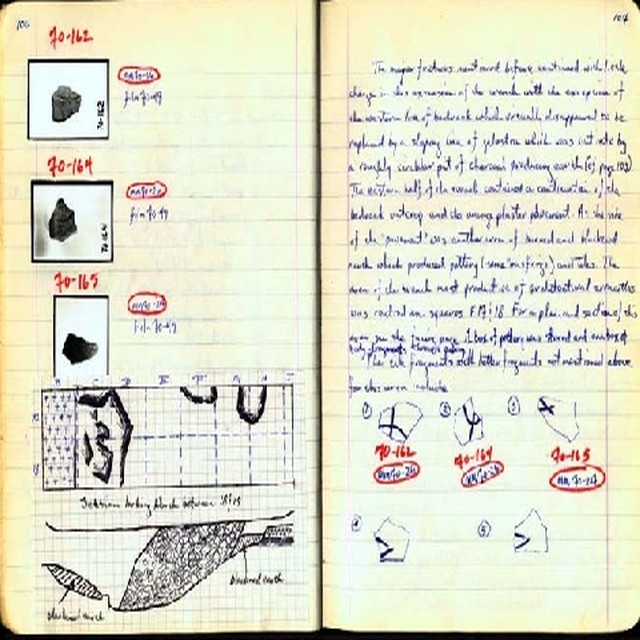 100
70-162
film 70-49
70-162
70-164
film 70-49
70-164
70-165
film 70-49
Section looking North between
blackened earth
blackened earth
104
The major features mentioned before continued with little
change in this extension of the trench with the exception of
the western line of bedrock which virtually disappeared to be
replaced by a sloping line of which was cut into by
a roughly circular pit of charcoal producing earth (cf page 102)
The eastern half of the trench contained a continuation of the
bedrock outcrop and the among plaster pavement. At the side
of the 'pavement' was another area of burned and blackened
earth which produced pottery (some misfirings) and tiles. The
area of the trench most productive of architectural terracottas
was centred on squares F 17/18. For a plan and section of this
area see the page. 1 box of pottery was stored and
The tile fragments with letter fragments not mentioned above
for this area include
① ② ③
70-162 70-164 70-165
④ ⑤